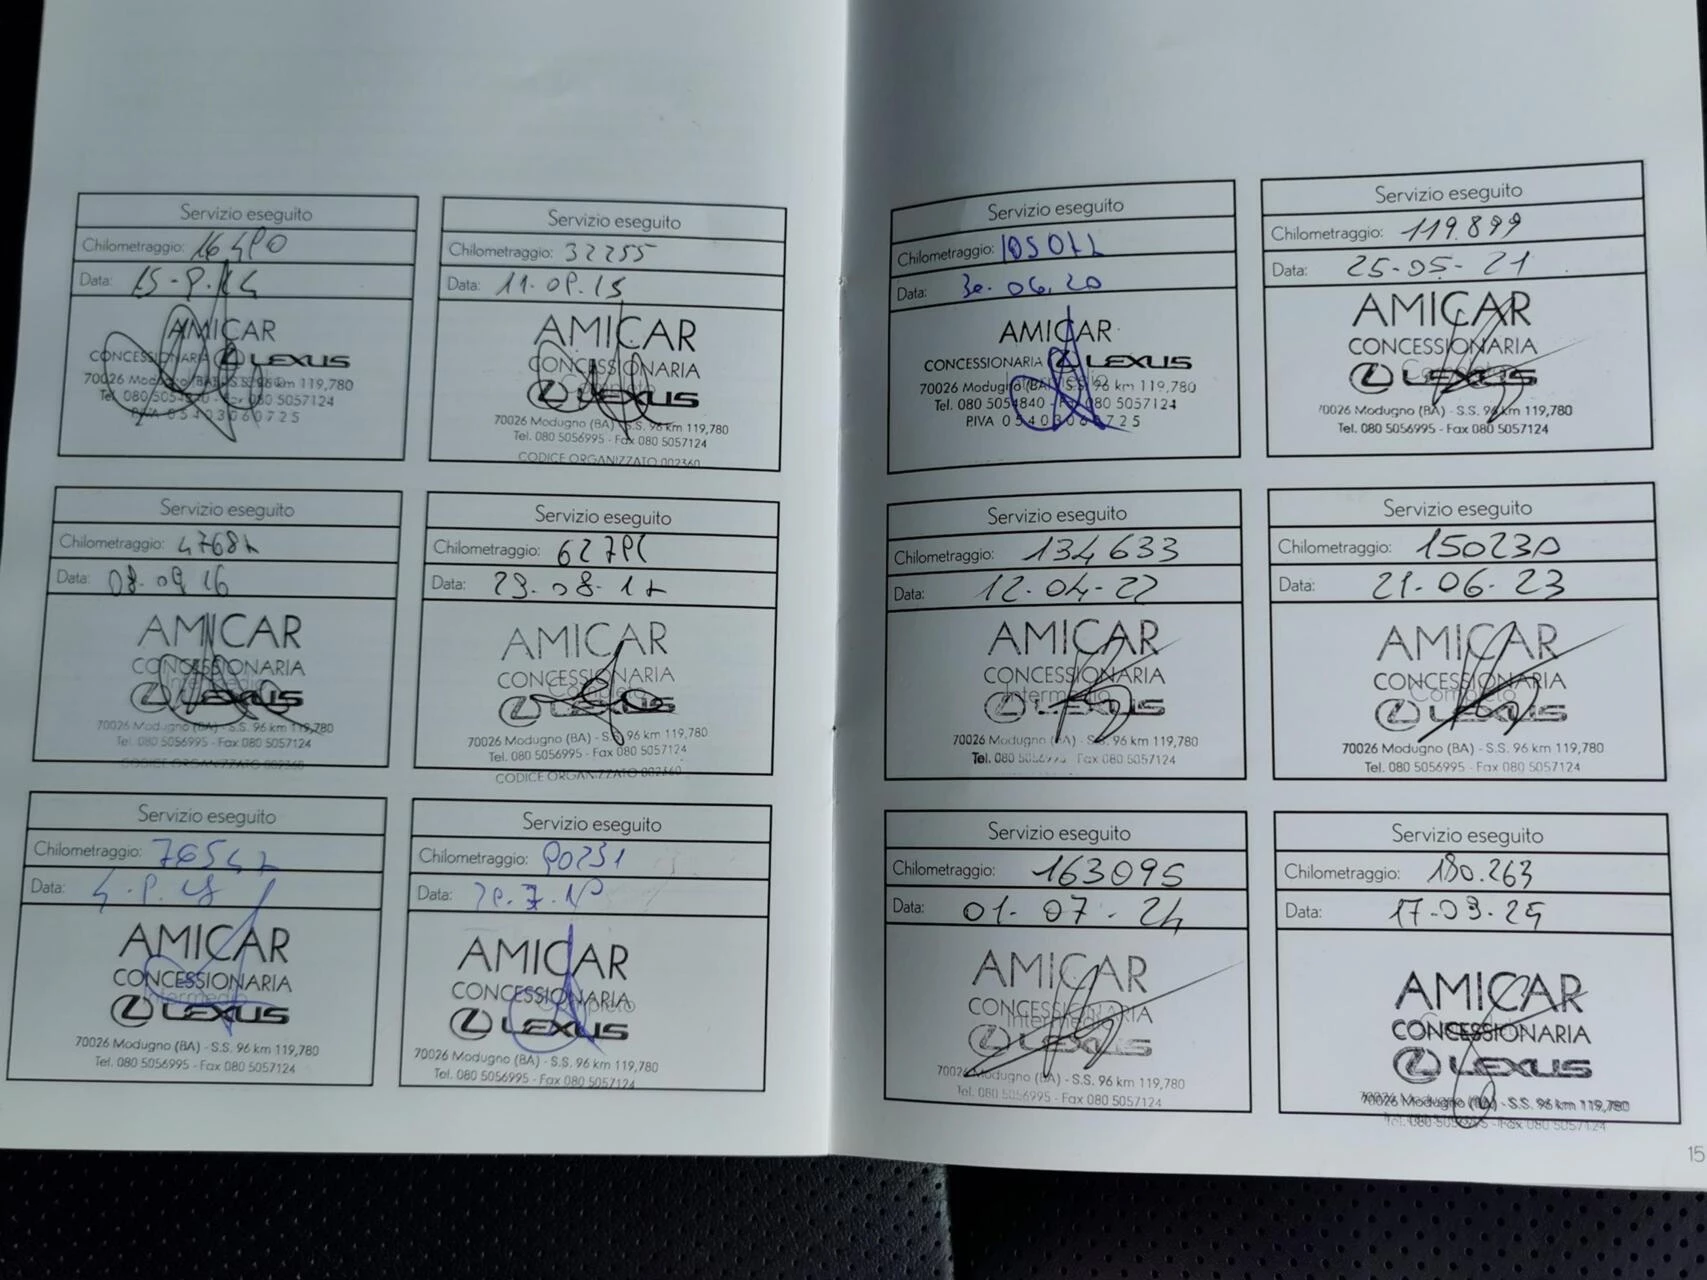 Servizio eseguito
Chilometraggio:
Data:
AMICAR
CONCESSIONARIA LEXUS
70026 Modugno (BA) - S.S. 96 km 119,780
Tel. 080 5054840 - Fax 080 5057124
P.IVA 05403060725
Servizio eseguito
Chilometraggio: 32255
Data: 11.09.15
AMICAR
CONCESSIONARIA
Completo
LEXUS
70026 Modugno (BA) - S.S. 96 km 119,780
Tel. 080 5056995 - Fax 080 5057124
CODICE ORGANIZZATO 002360
Servizio eseguito
Chilometraggio:
Data: 08.09 16
AMICAR
CONCESSIONARIA
Intermedio
LEXUS
70026 Modugno (BA) - S.S. 96 km 119,780
Tel. 080 5056995 - Fax 080 5057124
CODICE ORGANIZZATO 002360
Servizio eseguito
Chilometraggio:
Data: 29.08.17
AMICAR
CONCESSIONARIA
Completo
LEXUS
70026 Modugno (BA) - S.S. 96 km 119,780
Tel. 080 5056995 - Fax 080 5057124
CODICE ORGANIZZATO 002360
Servizio eseguito
Chilometraggio: 76547
Data:
AMICAR
CONCESSIONARIA
Intermedio
LEXUS
70026 Modugno (BA) - S.S. 96 km 119,780
Tel. 080 5056995 - Fax 080 5057124
Servizio eseguito
Chilometraggio: 90251
Data:
AMICAR
CONCESSIONARIA
Completo
LEXUS
70026 Modugno (BA) - S.S. 96 km 119,780
Tel. 080 5056995 - Fax 080 5057124
Servizio eseguito
Chilometraggio:
Data: 30.06.20
AMICAR
CONCESSIONARIA LEXUS
Intermedio
70026 Modugno (BA) S.S. 96 km 119,780
Tel. 080 5054840 - Fax 080 5057124
P.IVA 05403060725
Servizio eseguito
Chilometraggio: 119.899
Data: 25-05-21
AMICAR
CONCESSIONARIA
Completo
LEXUS
70026 Modugno (BA) - S.S. 96 km 119,780
Tel. 080 5056995 - Fax 080 5057124
Servizio eseguito
Chilometraggio: 134633
Data: 12-04-22
AMICAR
CONCESSIONARIA
Intermedio
LEXUS
70026 Modugno (BA) - S.S. 96 km 119,780
Tel. 080 Fax 080 5057124
Servizio eseguito
Chilometraggio: 150230
Data: 21.06.23
AMICAR
CONCESSIONARIA
Completo
LEXUS
70026 Modugno (BA) - S.S. 96 km 119,780
Tel. 080 5056995 - Fax 080 5057124
Servizio eseguito
Chilometraggio: 163095
Data: 01-07-24
AMICAR
CONCESSIONARIA
Intermedio
LEXUS
70026 Modugno (BA) - S.S. 96 km 119,780
Tel. 080 5056995 - Fax 080 5057124
Servizio eseguito
Chilometraggio: 180.263
Data: 17-09-25
AMICAR
CONCESSIONARIA
LEXUS
70026 Modugno (BA) - S.S. 96 km 119,780
Tel. 080 5056995 - Fax 080 5057124
15